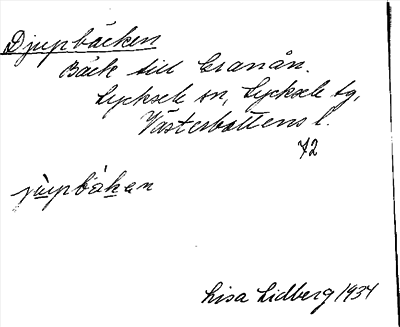 Djupbäcken
Bäck till Granån.
Lycksele sn, Lycksele tg,
Västerbottens l.
72
jupbäkan
Lisa Lidberg 1934